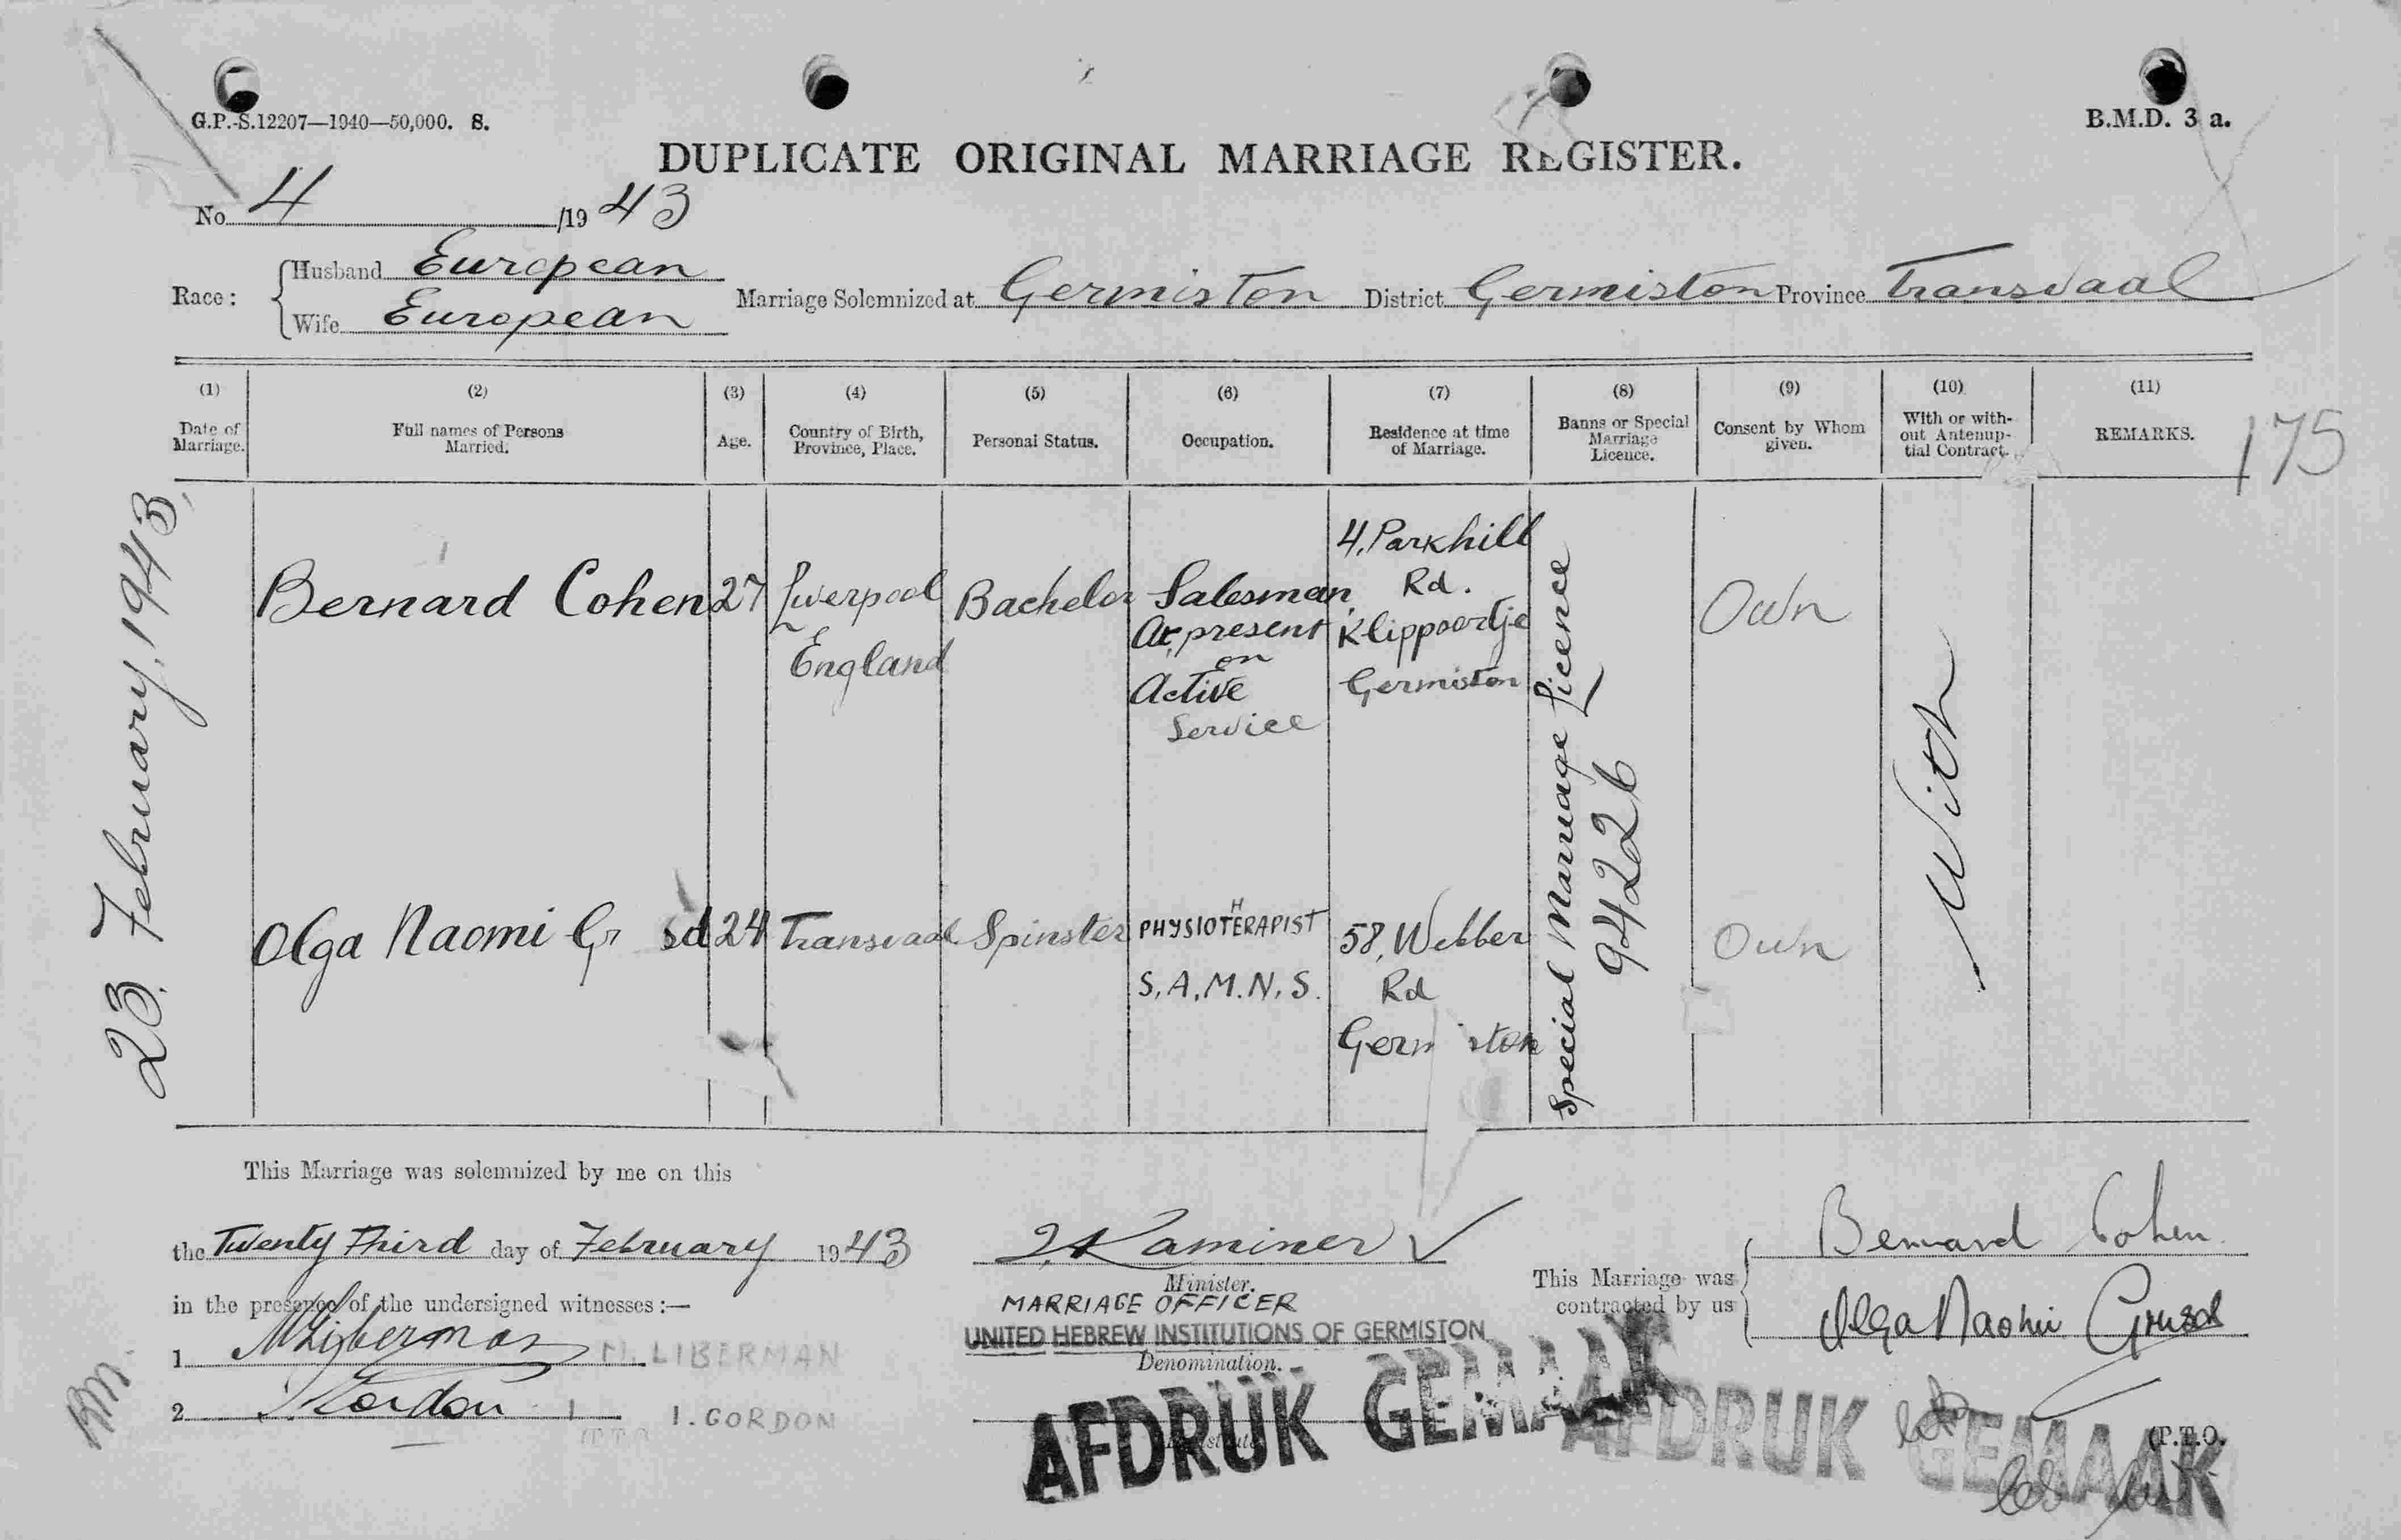 G.P.-S.12207—1940—50,000. S.
B.M.D. 3 a.
DUPLICATE ORIGINAL MARRIAGE REGISTER.
No 4 /1943
Race: Husband European
Wife European
Marriage Solemnized at Germiston District Germiston Province Transvaal
(1) (2) (3) (4) (5) (6) (7) (8) (9) (10) (11)
Date of Marriage. Full names of Persons Married. Age. Country of Birth, Province, Place. Personal Status. Occupation. Residence at time of Marriage. Banns or Special Marriage Licence. Consent by Whom given. With or without Antenuptial Contract. REMARKS.
175
23. February, 1943,
Bernard Cohen 27 Liverpool England Bachelor Salesman, At present on Active Service 4, Parkhill Rd. Klippoortje Germiston Own
Special Marriage Licence
94226
With
Olga Naomi Gr sd 24 Transvaal Spinster PHYSIOTHERAPIST S.A.M.N.S. 58, Webber Rd Germ ston Own
This Marriage was solemnized by me on this
the Twenty Third day of February 1943
in the presence of the undersigned witnesses:—
1 M Liberman M. LIBERMAN
2 I. Gordon I. GORDON
I. Kaminer
Minister.
MARRIAGE OFFICER
UNITED HEBREW INSTITUTIONS OF GERMISTON
Denomination.
This Marriage was contracted by us
Bernard Cohen
Olga Naomi
AFDRUK GEMAAK
AFDRUK GEMAAK
(P.T.O.